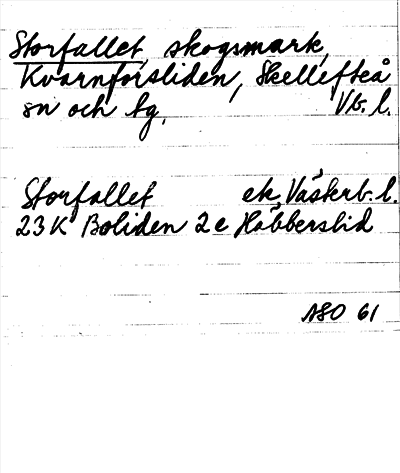 Storfallet, skogsmark,
Kvarnforsliden, Skellefteå
sn och tg, Vb. l.
Storfallet ek, Västerb. l.
23K Boliden 2e Häbberslid
ASO 61